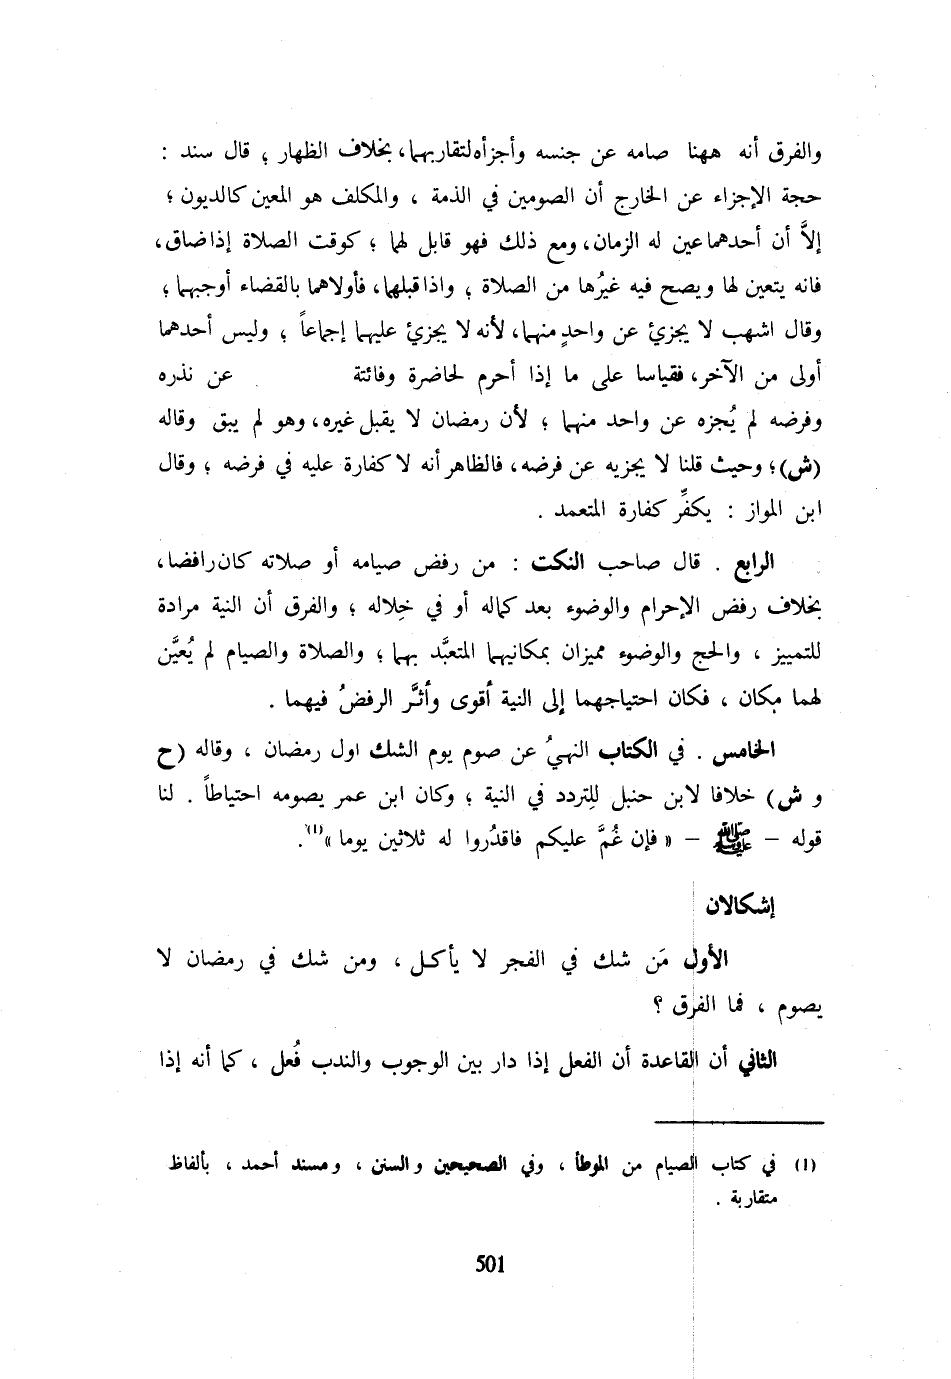 والفرق أنه ههنا صامه عن جنسه وأجزأه لتقاربهما، بخلاف الظهار ؛ قال سند :
حجة الإجزاء عن الخارج أن الصومين في الذمة ، والمكلف هو المعين كالديون ؛
إلاَّ أن أحدهما عين له الزمان، ومع ذلك فهو قابل لهما ؛ كوقت الصلاة إذا ضاق،
فانه يتعين لها ويصح فيه غيرُها من الصلاة ؛ واذا قبلهما، فأولاهما بالقضاء أوجبهما ؛
وقال اشهب لا يجزئ عن واحدٍ منهما، لأنه لا يجزئ عليهما إجماعاً ؛ وليس أحدهما
أولى من الآخر، فقياسا على ما إذا أحرم لحاضرة وفائتة عن نذره
وفرضه لم يُجزه عن واحد منهما ؛ لأن رمضان لا يقبل غيره، وهو لم يبق وقاله
(ش)؛ وحيث قلنا لا يجزيه عن فرضه، فالظاهر أنه لا كفارة عليه في فرضه ؛ وقال
ابن المواز : يكفِّر كفارة المتعمد .
الرابع . قال صاحب النكت : من رفض صيامه أو صلاته كان رافضا،
بخلاف رفض الإحرام والوضوء بعد كماله أو في خِلاله ؛ والفرق أن النية مرادة
للتمييز ، والحج والوضوء مميزان بمكانيهما المتعبَّد بهما ؛ والصلاة والصيام لم يُعيَّن
لهما مكان ، فكان احتياجهما إلى النية أقوى وأثرَّ الرفضُ فيهما .
الخامس . في الكتاب النهيُ عن صوم يوم الشك اول رمضان ، وقاله (ح
و ش) خلافا لابن حنبل لِلتردد في النية ؛ وكان ابن عمر يصومه احتياطاً . لنا
قوله – ﷺ – « فإن غُمَّ عليكم فاقدُروا له ثلاثين يوما »(1).
إشكالان
الأول مَن شك في الفجر لا يأكل ، ومن شك في رمضان لا
يصوم ، فما الفرق ؟
الثاني أن القاعدة أن الفعل إذا دار بين الوجوب والندب فُعل ، كما أنه إذا
(1) في كتاب الصيام من الموطأ ، وفي الصحيحين والسنن ، ومسند أحمد ، بألفاظ
متقاربة .
501